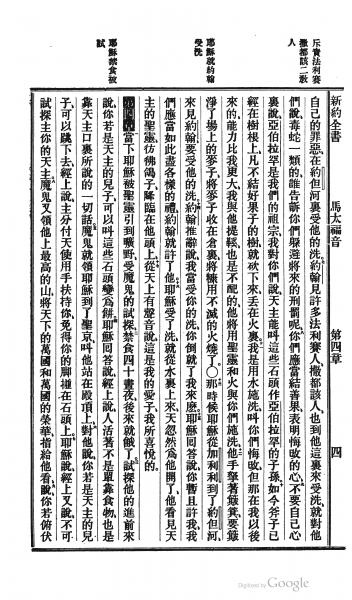 新約全書　馬太福音　第四章　四
斥責法利賽
撒都該二教
人
自己的罪惡、在約但河裏受他的洗約翰見許多法利賽人、撒都該人、也到他這裏來受洗、就對他
們說、毒蛇一類的、誰告訴你們躱避將來的刑罰呢、你們應當結善果、表明悔改的心、不要自己心
裏說、亞伯拉罕是我們的祖宗我對你們說天主能叫這些石頭作亞伯拉罕的子孫如今斧子已
經在樹根上、凡不結好果子的樹就砍下來、丟在火裏我是用水施洗叫你們悔改但那在我以後
來的能力比我更大我與他提鞋、也是不配的他將用聖靈和火與你們施洗他手拏著簸箕要簸
耶穌就約翰
受洗
淨了場上的麥子、將麥子收在倉裏將糠用不滅的火燒了○那時候耶穌從加利利到了約但河、
來見約翰要受他的洗約翰推辭說我當受你的洗你倒就了我來麽耶穌回答說你暫且許我我
們應當如此盡各樣的禮約翰就許了他耶穌受了洗就從水裏上來天忽然爲他開了他看見天
主的聖靈、彷彿鴿子、降臨在他頭上從天上有聲音說這是我的愛子我所喜悅的
耶穌禁食被
試
第四章 當下耶穌被聖靈引到曠野受魔鬼的試探禁食四十晝夜後來就餓了試探他的進前來
說你若是天主的兒子可以叫這些石頭變爲餅耶穌回答說經上說人活著不是單靠食物也是
靠天主口裏所說的一切話魔鬼就領耶穌到了聖京叫他站在殿頂上對他說你若是天主的兒
子可以跳下去經上說主分付天使用手扶持你免得你的脚撞在石頭上耶穌說經上又說不可
試探主你的天主魔鬼又領他上最高的山將天下的萬國和萬國的榮華、指給他看說你若俯伏
Digitized by Google